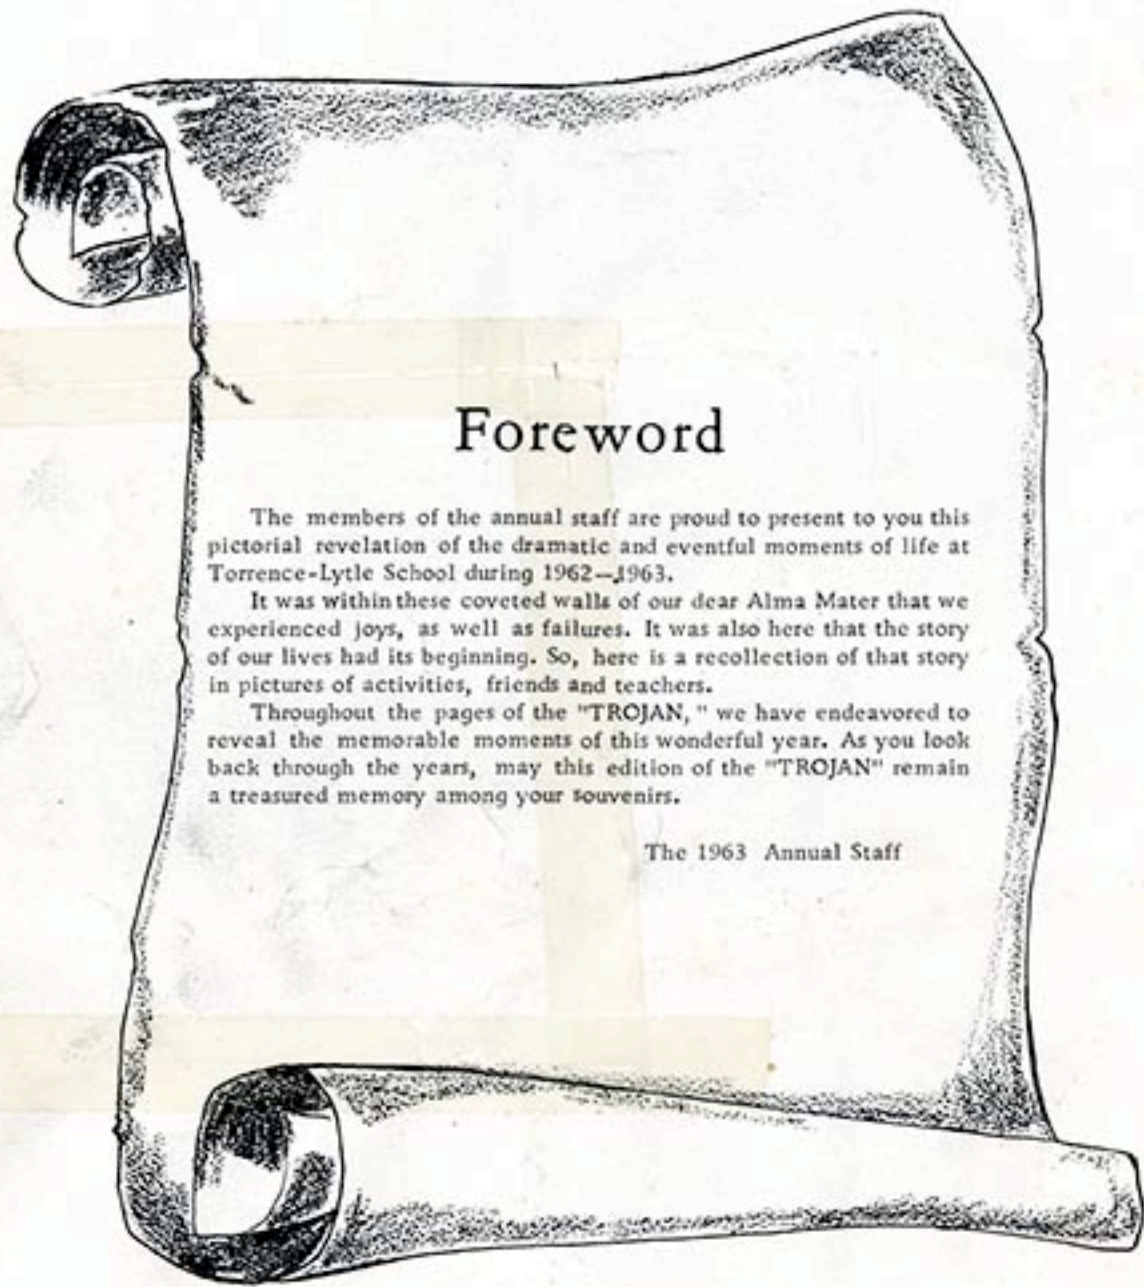 Foreword
The members of the annual staff are proud to present to you this
pictorial revelation of the dramatic and eventful moments of life at
Torrence-Lytle School during 1962—1963.
It was within these coveted walls of our dear Alma Mater that we
experienced joys, as well as failures. It was also here that the story
of our lives had its beginning. So, here is a recollection of that story
in pictures of activities, friends and teachers.
Throughout the pages of the "TROJAN, " we have endeavored to
reveal the memorable moments of this wonderful year. As you look
back through the years, may this edition of the "TROJAN" remain
a treasured memory among your souvenirs.
The 1963 Annual Staff